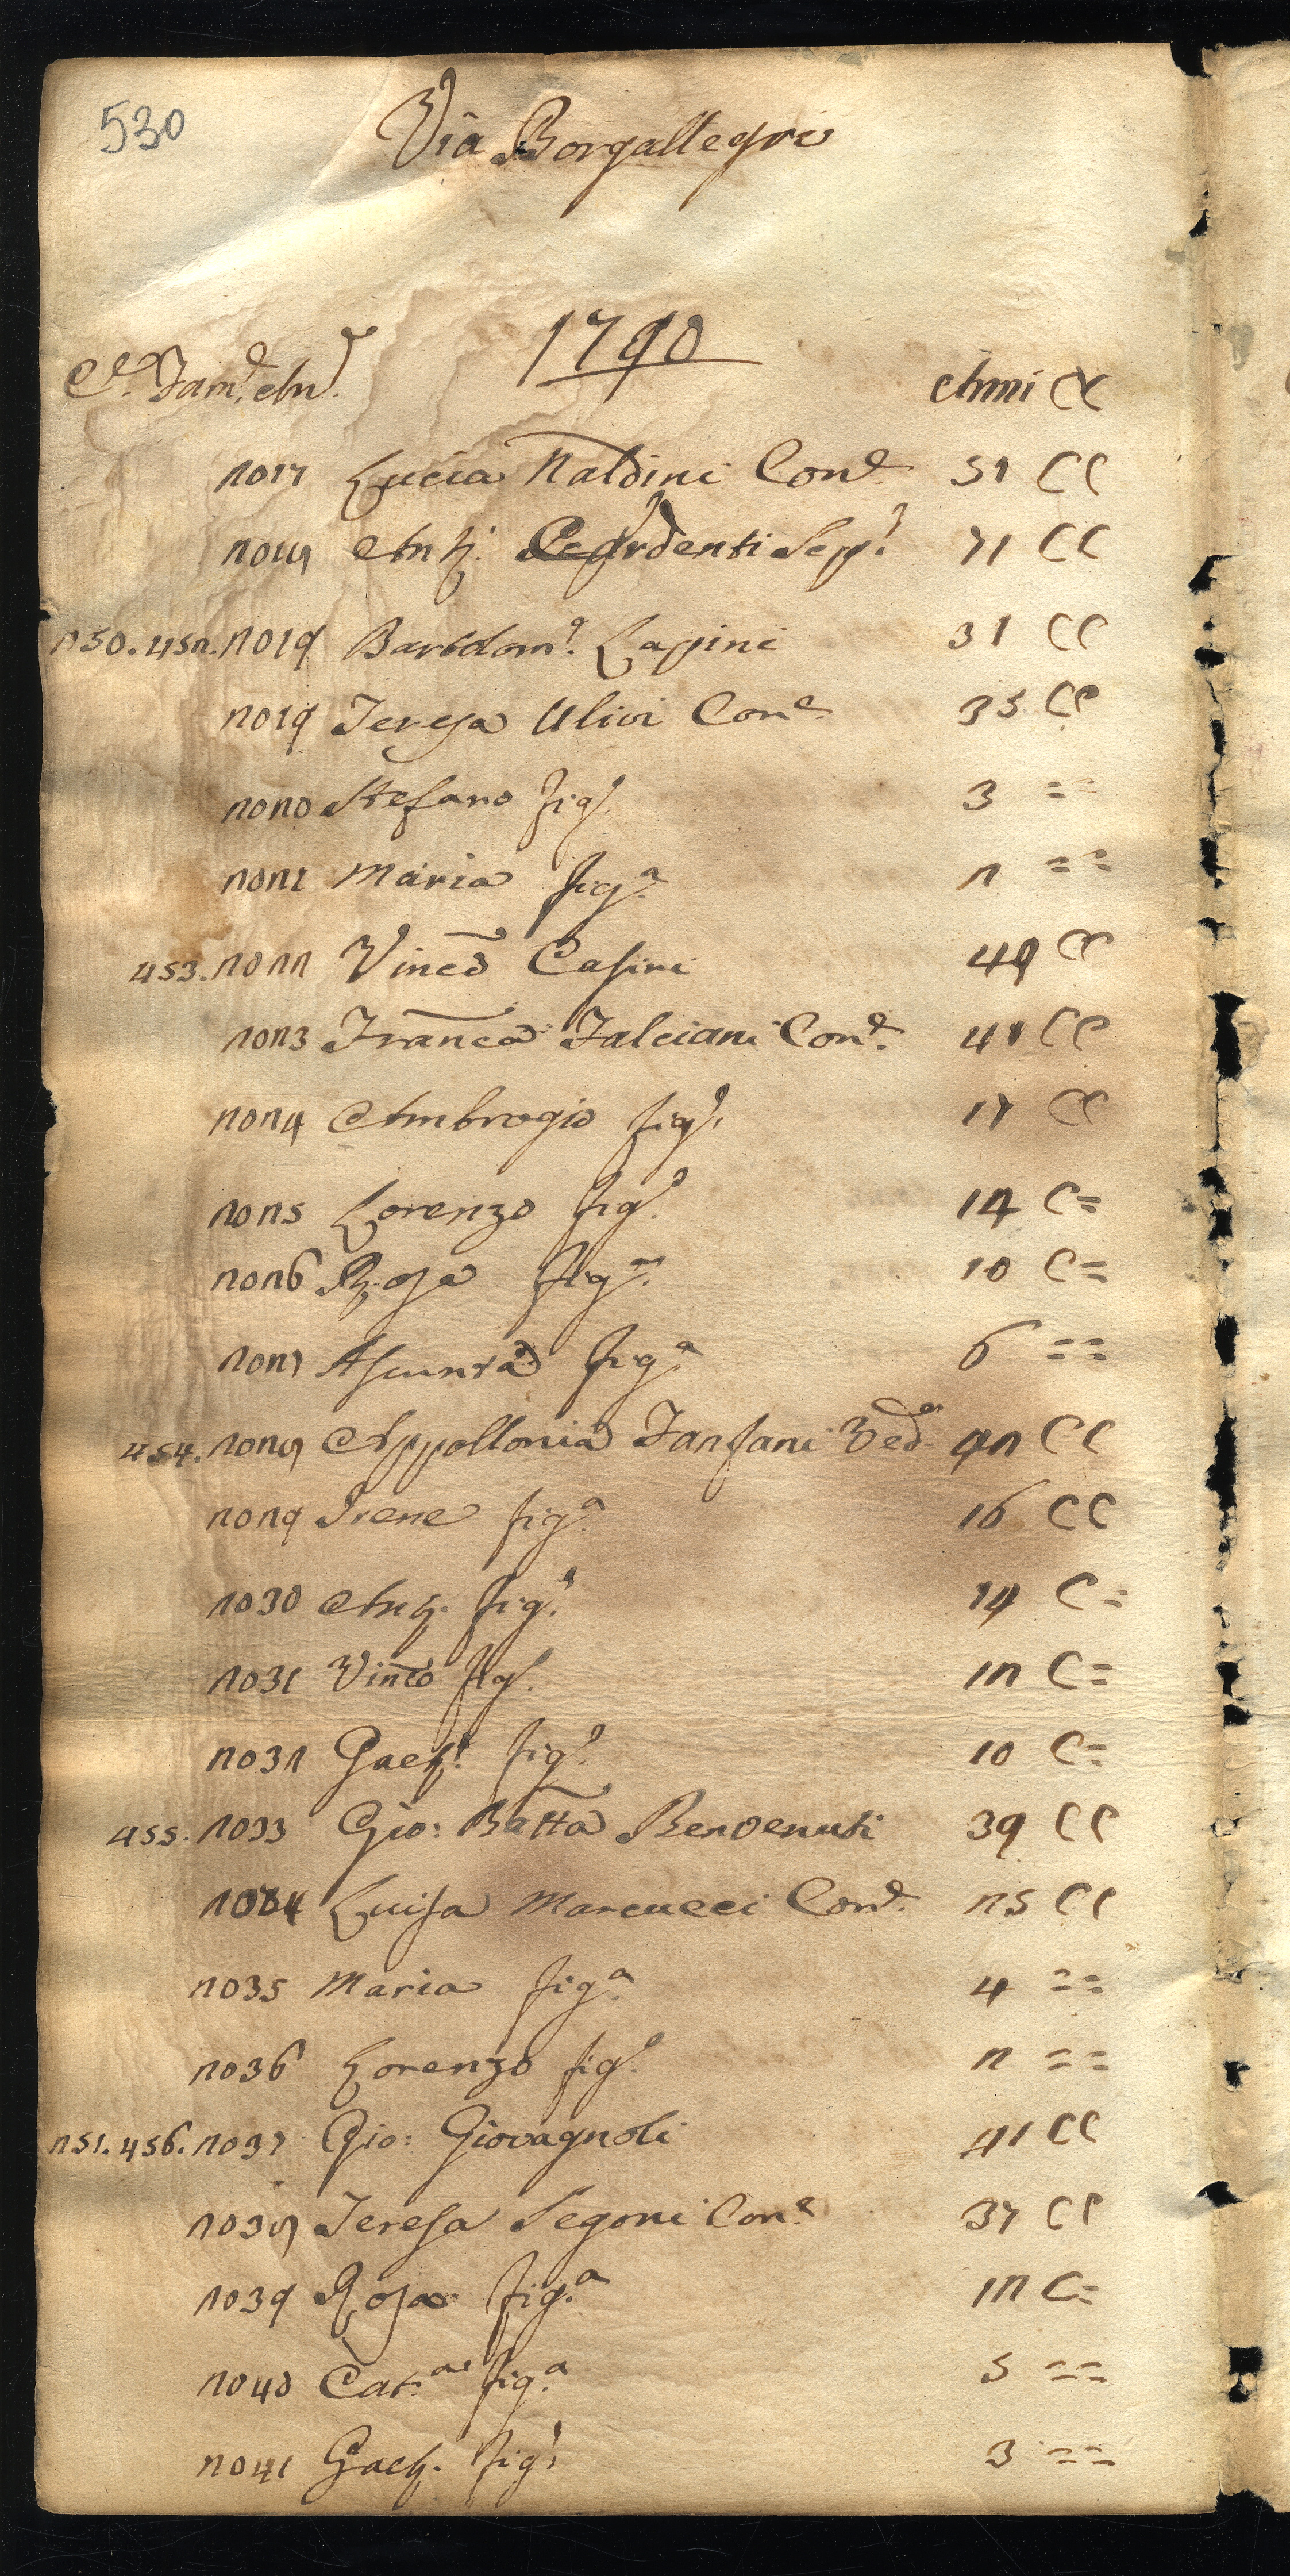 530
Via Borgallegri
1790
C.e Fam.e An.e Anni CC
2017 Lucia Naldini Con.e 51 CC
2018 Ant.o Ardenti Sep.o 71 CC
250. 452. 2019 Bartolom.o Lapini 31 CC
2019 Teresa Ulivi Con.e 35 CC
2020 Stefano fig.o 3 ==
2021 Maria fig.a 2 ==
453. 2022 Vinc.o Casini 49 CC
2023 Franca Falciani Con.e 41 CC
2024 Ambrogio fig.o 17 CC
2025 Lorenzo fig.o 14 C=
2026 Rosa fig.a 10 C=
2027 Asunta fig.a 6 ==
454. 2028 Appollonia Fanfani Ved.a 42 CC
2029 Irene fig.a 16 CC
2030 Ant.o fig.o 14 C=
2031 Vinco fig.o 12 C=
2032 Gaet.o fig.o 10 C=
455. 2033 Gio: Batta Benvenuti 39 CC
2034 Luisa Marcucci Con.e 25 CC
2035 Maria fig.a 4 ==
2036 Lorenzo fig.o 2 ==
251. 456. 2037 Gio: Giovagnoli 41 CC
2038 Teresa Segoni Con.e 37 CC
2039 Rosa fig.a 12 C=
2040 Cat.a fig.a 5 ==
2041 Gaet.o fig.o 3 ==